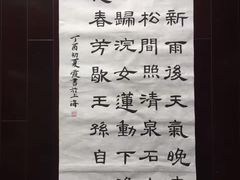 新雨後天氣晚
松間照清泉石
歸浣女蓮動下
春芳歇王孫自
丁酉初夏霞書於上海